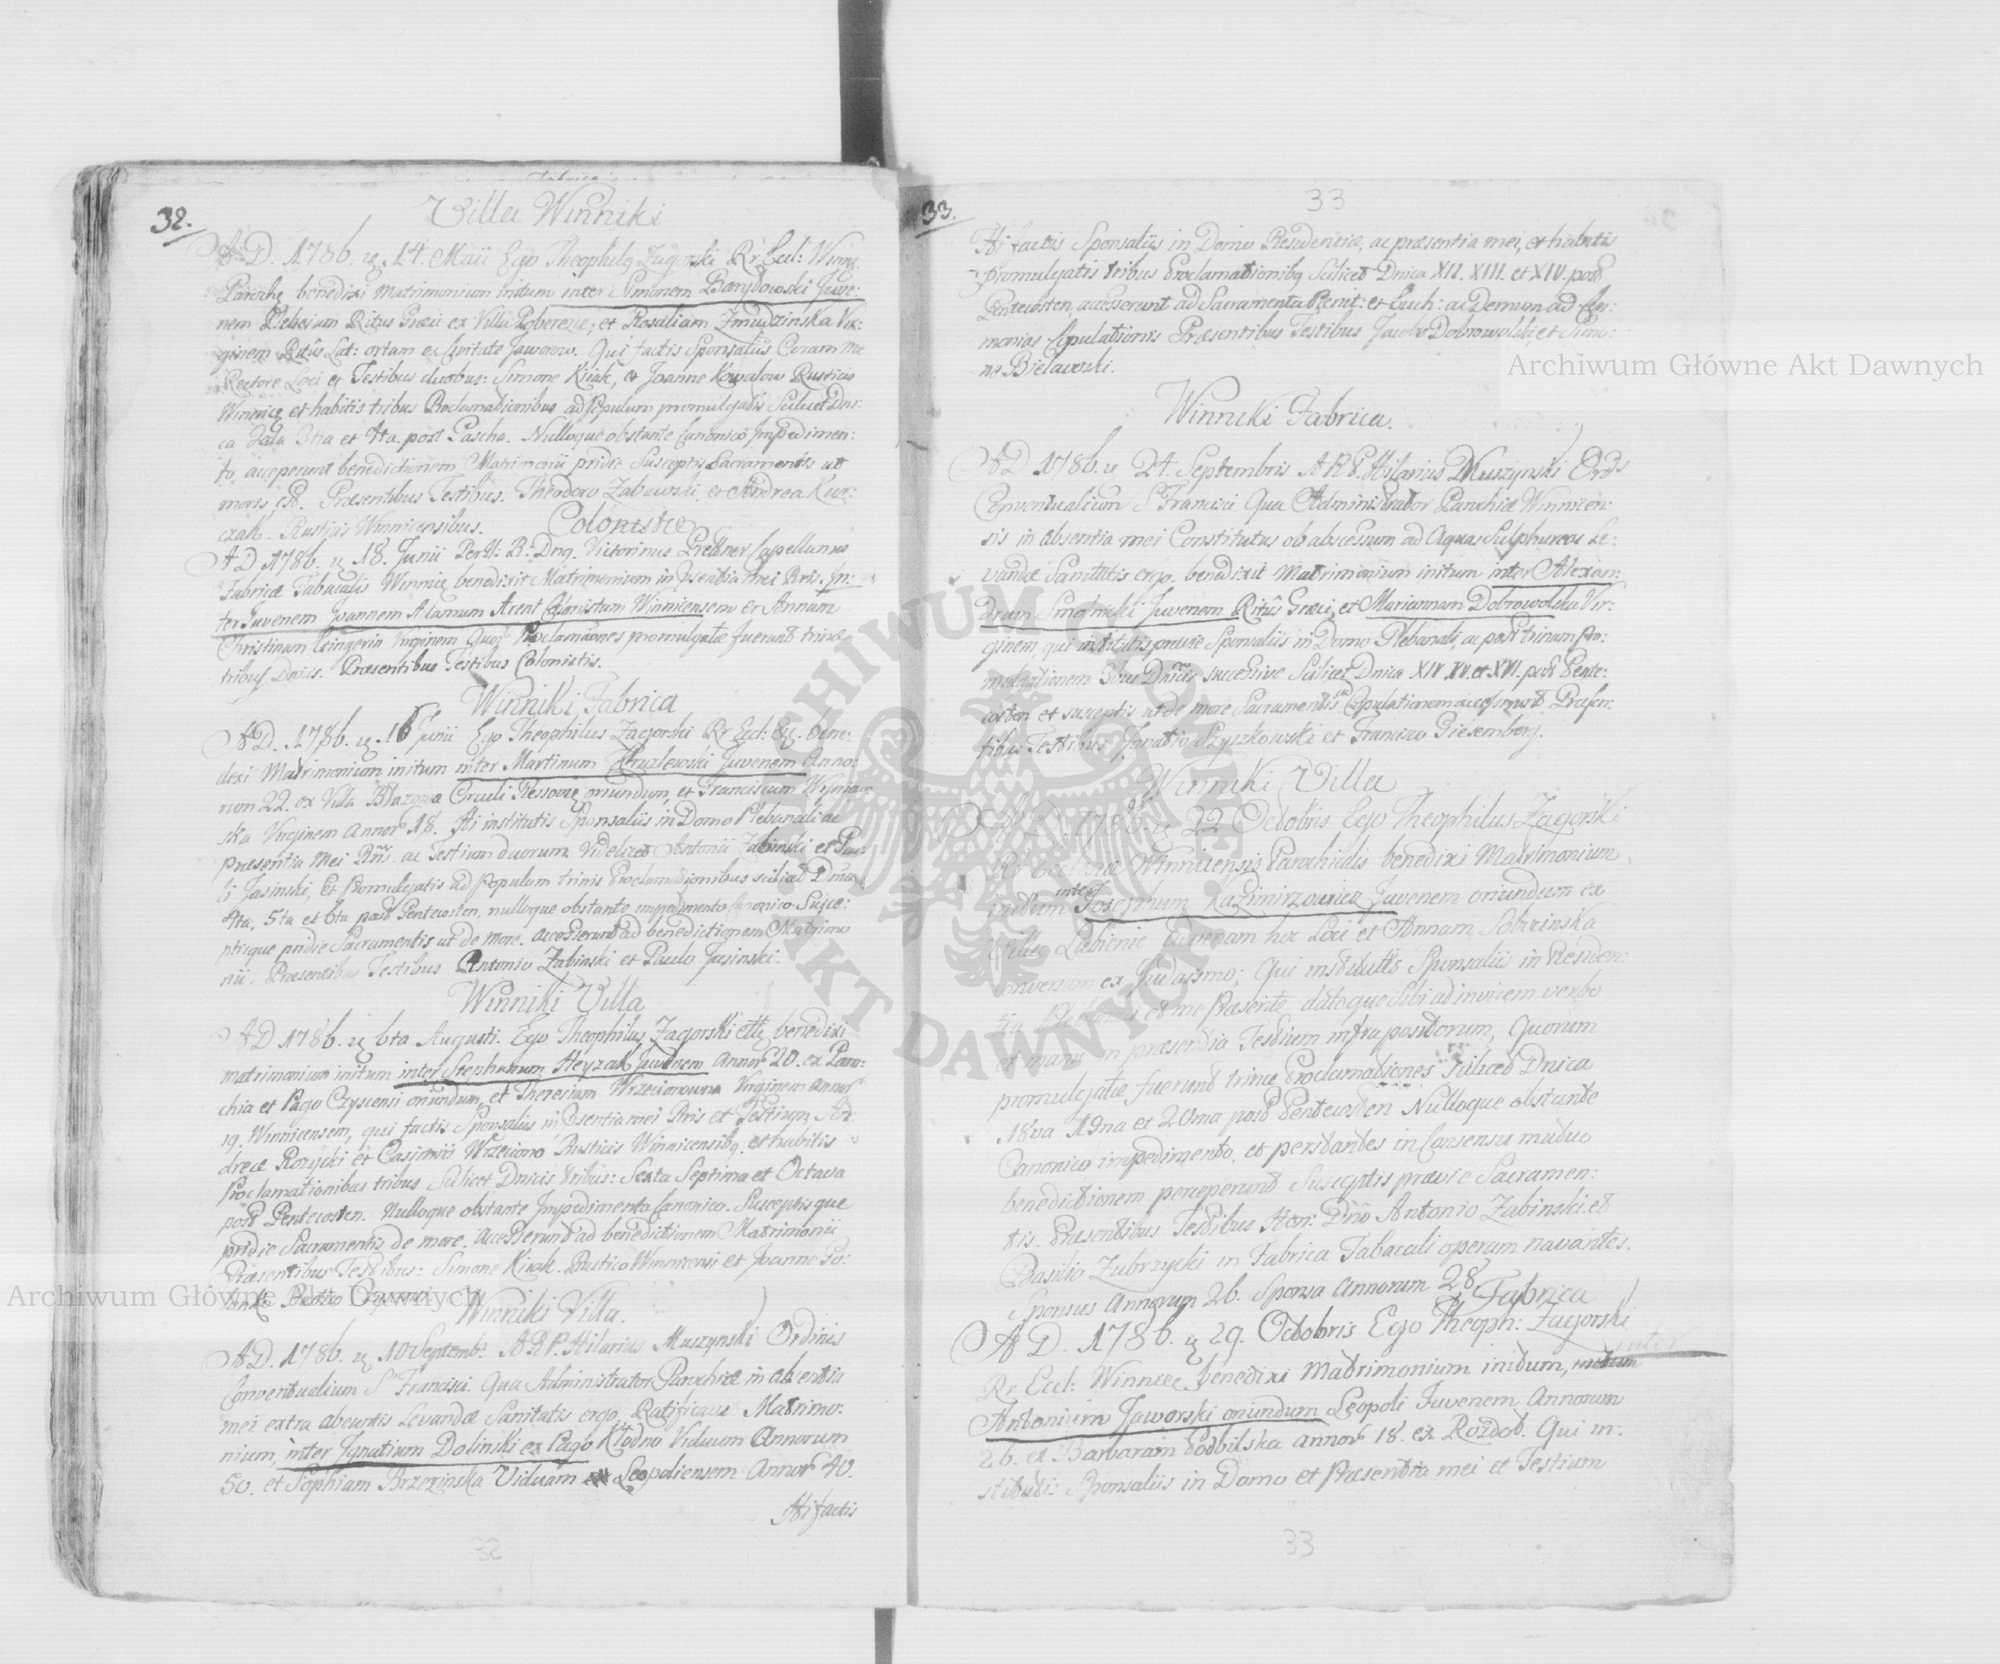 32.
Villa Winniki
A D. 1786. 14. Maii Ego Theophilq Zagorski Rr Eccl: Winnic
Parochq benedixi Matrimonium initum inter Simonem Barydowski Juve:
nem Plebeium Ritus Græci ex Villa Poberezie, et Rosaliam Zmudzinska Vir:
ginem Ritûs Lat: ortam ex Civitate Jaworow. Qui factis Sponsaliis Coram me
Rectore Loci et Testibus duobus: Simone Kiiak, et Joanne Kowalow Rusticis
Winnicę et habitis tribus Proclamationibus ad Populum promulgatis Scilicet Dni:
ca 2da 3tia et 4ta post Pascha. Nulloque obstante Canonico Impedimen:
to, acceperunt benedictionem Matrimonii pridie Susceptis Sacramentis ut
moris est. Præsentibus Testibus. Theodoro Zabawski, et Andrea Kur:
czak. Rusticis Winnicensibus.
Colonistæ
A D 1786. 18. Junii Per R: Dnq. Victorinus Prettner Capellanus
Fabricæ Tabacalis Winnic benedixit Matrimonium in Psentia Mei Pris. In:
ter Juvenem Joannem Adamum Arent Colonistam Winnicensem et Annam
Christinam Virginem Quor Proclamãones promulgatæ fuerunt trinæ
tribus Dnicis. Præsentibus Testibus Colonistis.
Winniki Fabrica
A D. 1786. 16 Junii Ego Theophilus Zagorski Rr Eccl: bene:
dixi Matrimonium initum inter Martinum Juvenem Anno:
rum 22. ex Villa Błazowa Circuli Ressoviæ oriundum, et Franciscam
ska Virginem Annor 18. Hi institutis Sponsaliis in Domo Plebanali ac
præsentia Mei ac Testium duorum Videlicet Antonii Zabinski et Pau:
li Jasinski, Et Promulgatis ad Populum trinis Proclamationibus scilicet Dnica
4ta, 5ta et 6ta post Pentecosten, nulloque obstante impedimento Canonico Susce:
ptisque pridie Sacramentis ut de more. accesserunt ad benedictionem Matrimo
nii. Præsentibus Testibus Antonio Zabinski et Paulo Jasinski.
Winniki Villa
A D 1786. 6ta Augusti. Ego Theophilus Zagorski benedixi
matrimonium initum inter Stephanum Heyzak Juvenem Annor 20. ex Paro:
chia et Pago Czyscensi oriundum, et Theresiam Wrzecionowna Virginem annor
19. Winnicensem, qui factis Sponsaliis in Psentia mei Pris et Testium An
dreæ Rozycki et Casimiri Wrzeciono Rusticis Winnicensibq. et habitis
Proclamationibus tribus Scilicet Dnicis tribus: Sexta Septima et Octava
post Pentecosten. Nulloque obstante Impedimento Canonico. Susceptisque
pridie Sacramentis de more. Accesserunt ad benedictionem Matrimonii
Præsentibus Testibus: Simone Kiiak. Rustico Winnicensi et Joanne
Winniki Villa.
A D. 1786. 10 Septemb: A R P. Hilarius Muszynski Ordinis
Conventualium S. Francisci. Qua Administrator Parochiæ in absentia
mei extra abeuntis Levandæ Sanitatis ergo, Ratificavit Matrimo:
nium, inter Ignatium Dolinski ex Pago Kłodno Viduum Annorum
50. et Sophiam Brzezinska Viduam Leopoliensem Annor 40.
Hi factis
32
33.
33
Hi factis Sponsaliis in Domo Residentiæ, ac præsentia mei, et habitis
promulgatis tribus Proclamationibq Scilicet Dnica XII. XIII. et XIV. post
Pentecosten, accesserunt ad Sacramenta Pœnit: et Euch: ac Demum ad Cær:
monias Copulationis Præsentibus Testibus Jacobo Dobrowolski et Simo:
ne Bielawski.
Winniki Fabrica.
A D 1786. 24. Septembris A R P. Hilarius Muszynski Ord
Conventualium S Francisci Qua Administrator Parochiæ Winnicen:
sis in absentia mei Constitutus ob abscessum ad Aquas Sulphureas Le:
vandæ Sanitatis ergo. benedixit Matrimonium initum inter Alexan:
drum Smolnicki Juvenem Ritûs Græci, et Mariannam Dobrowolska Vir:
ginem qui institutis, prævie Sponsaliis in Domo Plebanali, ac post trinam Pro:
mulgationem 3bus Dnicis successive Scilicet Dnica XIV XV et XVI. post Pente:
costen et susceptis ut de more Sacramentis Copulationem accesserunt Præsen:
tibus Testibus Ignatio Szyszkowski et Francisco Giesemberg.
Winniki Villa
A D. 1786. 22 Octobris Ego Theophilus Zagorski
Rr Ecclesiæ Winnicensis Parochialis benedixi Matrimonium
initum inter Josephum Kazimirzowicz Juvenem oriundum ex
Villa Lubienie hic Loci et Annam Sobrinska
Conversam ex Judaismo; Qui institutis Sponsaliis in Residen:
et me Præsente, datoque Sibi ad invicem verbo
et manu in præsentia Testium infra positorum, Quorum
promulgatæ fuerunt trinæ Proclamationes Scilicet Dnica
18va 19na et 20ma post Pentecosten Nulloque obstante
Canonico impedimento, et perstantes in Consensu mutuo
benedictionem perceperunt Susceptis prævie Sacramen:
tis. Præsentibus Testibus Hon: Dño Antonio Zabinski et
Basilio Zubrzycki in Fabrica Tabacali operam navantes.
Sponsus Annorum 26. Sponsa Annorum 28.
Fabrica
A D. 1786. 29. Octobris Ego Theoph: Zagorski
Rr Eccl: Winnicę benedixi Matrimonium initum, inter
Antonium Jaworski oriundum Leopoli Juvenem Annorum
26. et Barbaram Podbilska annor 18. ex Rozdoł. Qui in:
stitutis Sponsaliis in Domo et Præsentia mei et Testium
33
Archiwum Główne Akt Dawnych
Archiwum Główne Akt Dawnych
ARCHIWUM GŁÓWNE
AKT DAWNYCH